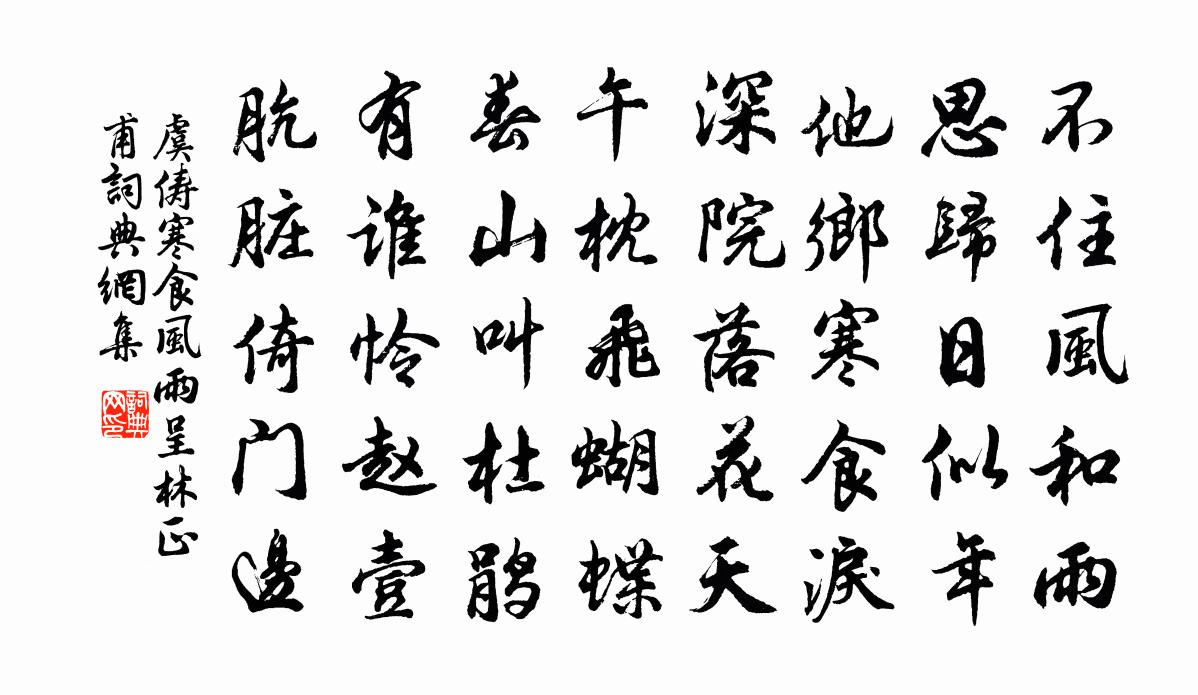 不住風和雨
思歸日似年
他鄉寒食淚
深院落花天
午枕飛蝴蝶
春山叫杜鹃
有谁怜赵壹
肮脏倚门邊
虞俦寒食風雨呈林正
甫詞典網集
詞典
网印